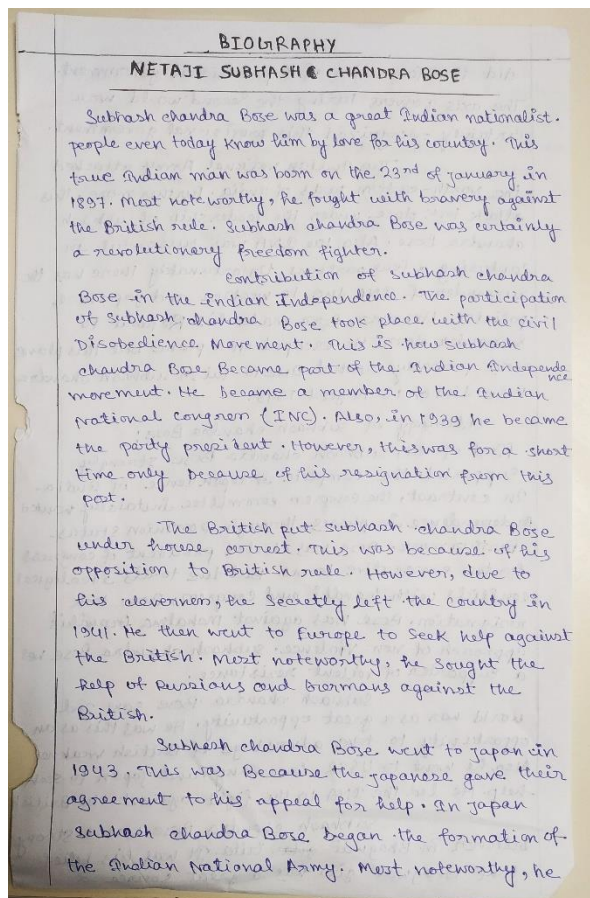 BIOGRAPHY
NETAJI SUBHASH CHANDRA BOSE
Subhash chandra Bose was a great Indian nationalist.
people even today know him by love for his country. This
true Indian man was born on the 23rd of january in
1897. Most noteworthy, he fought with bravery against
the British rule. Subhash chandra Bose was certainly
a revolutionary freedom fighter.
contribution of subhash chandra
Bose in the indian Independence. The participation
of Subhash chandra Bose took place with the civil
Disobedience Movement. This is how subhash
chandra Bose Became part of the Indian Independence
movement. He became a member of the Indian
National congress (INC). Also, in 1939 he became
the party president. However, this was for a short
time only because of his resignation from this
post.
The British put subhash chandra Bose
under house arrest. This was because of his
opposition to British rule. However, due to
his cleverness, he secretly left the country in
1941. He then went to Europe to seek help against
the British. Most noteworthy, he sought the
help of Russians and Germans against the
British.
Subhash chandra Bose went to japan in
1943. This was Because the japanese gave their
agreement to his appeal for help. In japan
Subhash chandra Bose began the formation of
the Indian National Army. Most noteworthy, he